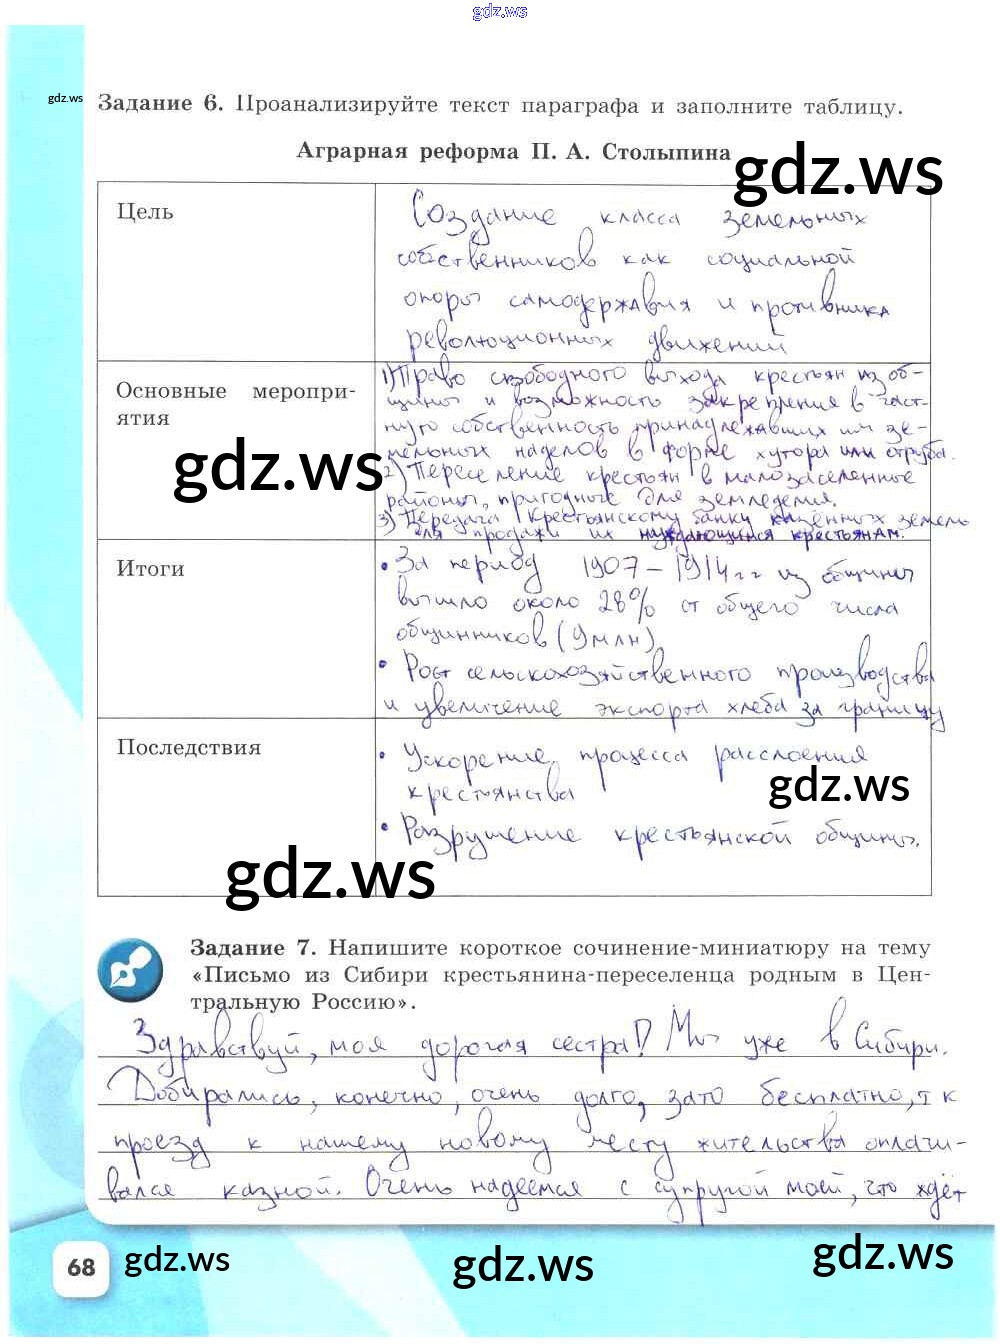 gdz.ws
gdz.ws
Задание 6. Проанализируйте текст параграфа и заполните таблицу.
Аграрная реформа П. А. Столыпина
gdz.ws
Цель
Создание класса земельных
собственников как социальной
опоры самодержавия и противника
революционных движений
Основные меропри-
ятия
1) Право свободного выхода крестьян из об-
щины и возможность закрепления в част-
ную собственность принадлежавших им зе-
мельных наделов в форме хутора или отруба.
2) Переселение крестьян в малозаселенные
районы, пригодные для земледелия.
3) Передача Крестьянскому банку казённых земель
для продажи их нуждающимся крестьянам.
gdz.ws
Итоги
• За период 1907-1914 гг из общины
вышло около 28% от общего числа
общинников (9 млн)
• Рост сельскохозяйственного производства
и увеличение экспорта хлеба за границу
Последствия
• Ускорение процесса расслоения
крестьянства
• Разрушение крестьянской общины.
gdz.ws
gdz.ws
Задание 7. Напишите короткое сочинение-миниатюру на тему
«Письмо из Сибири крестьянина-переселенца родным в Цен-
тральную Россию».
Здравствуй, моя дорогая сестра! Мы уже в Сибири.
Добирались, конечно, очень долго, зато бесплатно, т к
проезд к нашему новому месту жительства оплачи-
вался казной. Очень надеемся с супругой моей, что ждёт
68
gdz.ws
gdz.ws
gdz.ws